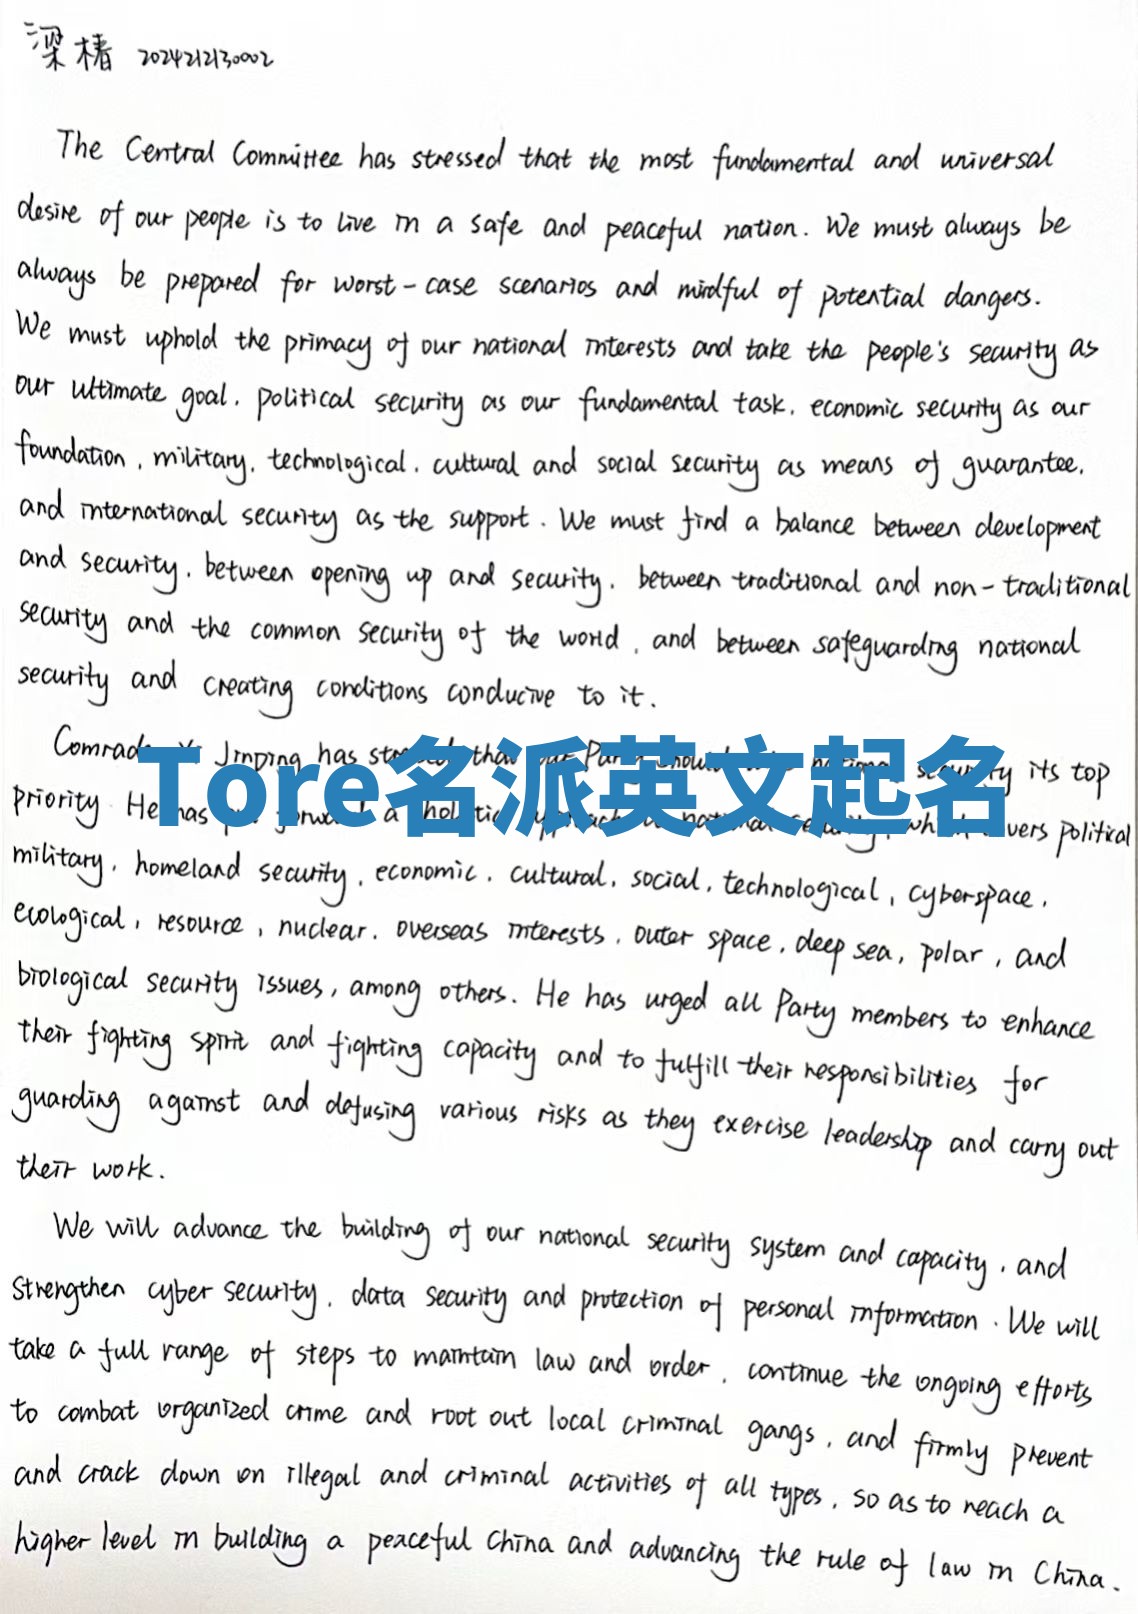 梁椿 2024212130002
The Central Committee has stressed that the most fundamental and universal
desire of our people is to live in a safe and peaceful nation. We must always be
always be prepared for worst-case scenarios and mindful of potential dangers.
We must uphold the primacy of our national interests and take the people's security as
our ultimate goal, political security as our fundamental task, economic security as our
foundation, military, technological, cultural and social security as means of guarantee,
and international security as the support. We must find a balance between development
and security, between opening up and security, between traditional and non-traditional
security and the common security of the world, and between safeguarding national
security and creating conditions conducive to it.
Jinping has that national security its top
Tore名派英文起名
priority. He has a political
military, homeland security, economic, cultural, social, technological, cyberspace,
ecological, resource, nuclear, overseas interests, outer space, deep sea, polar, and
biological security issues, among others. He has urged all Party members to enhance
their fighting spirit and fighting capacity and to fulfill their responsibilities for
guarding against and defusing various risks as they exercise leadership and carry out
their work.
We will advance the building of our national security system and capacity, and
strengthen cyber security, data security and protection of personal information. We will
take a full range of steps to maintain law and order, continue the ongoing efforts
to combat organized crime and root out local criminal gangs, and firmly prevent
and crack down on illegal and criminal activities of all types, so as to reach a
higher level in building a peaceful China and advancing the rule of law in China.